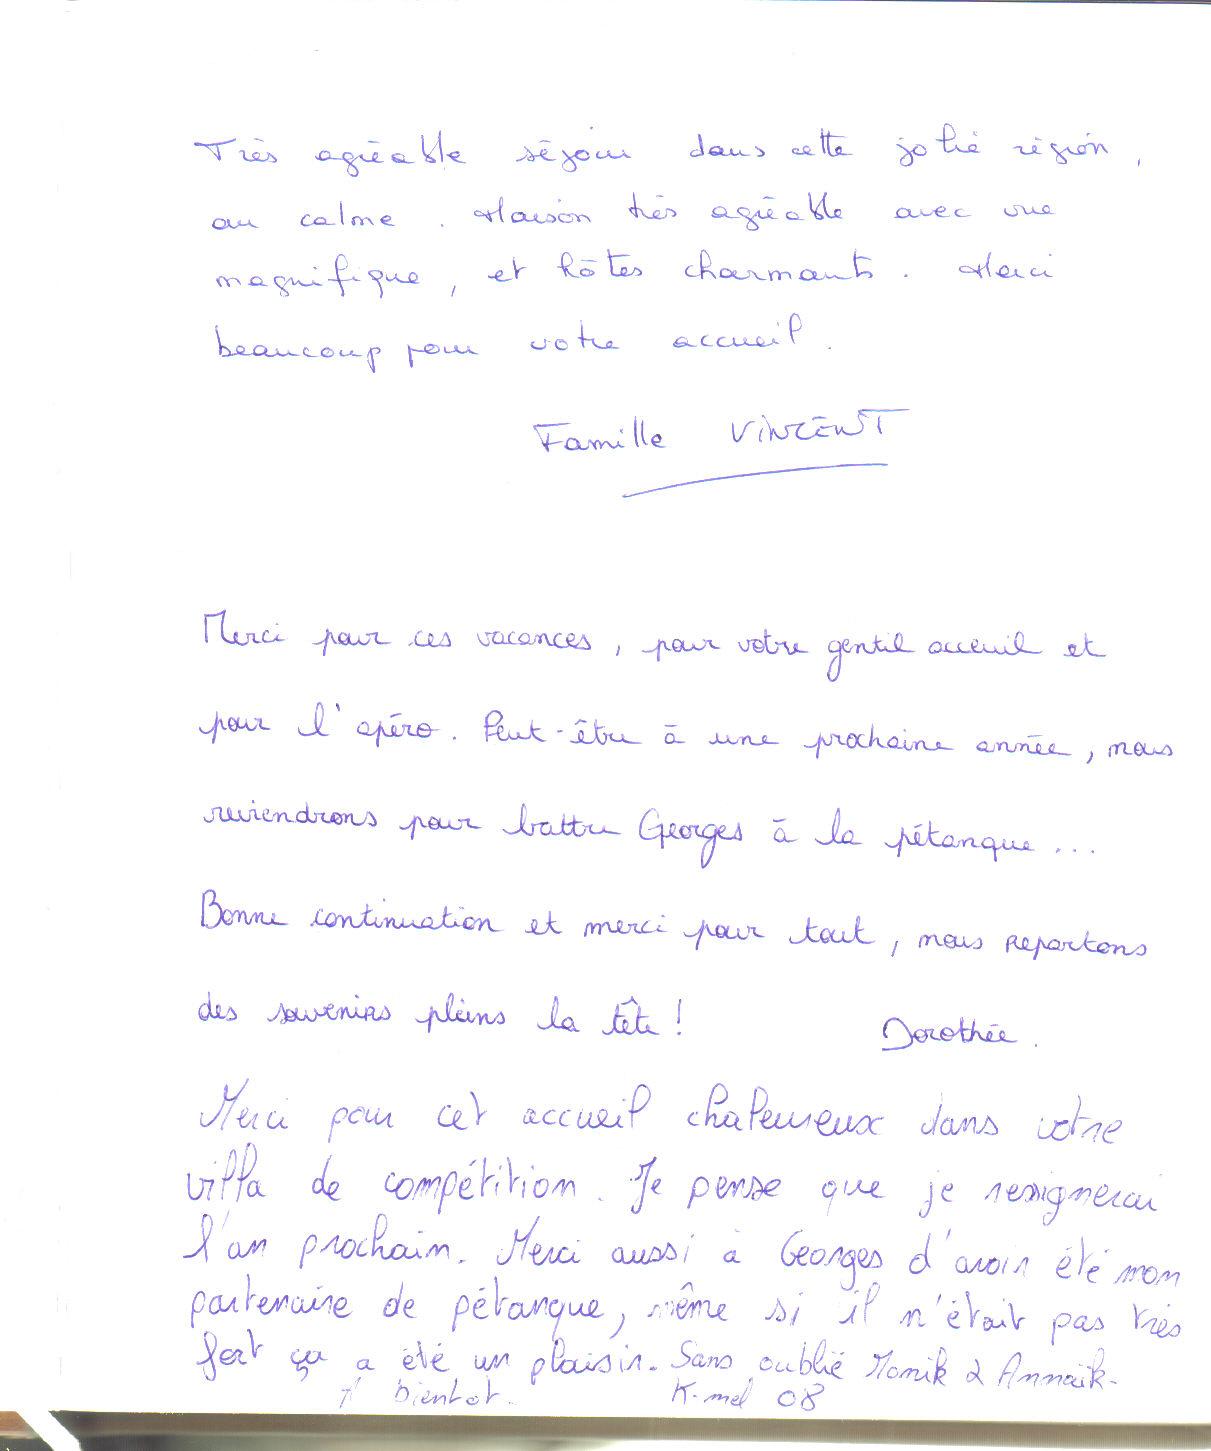 Très agréable séjour dans cette jolie région,
au calme. Maison très agréable avec vue
magnifique, et hôtes charmants. Merci
beaucoup pour votre accueil.
Famille VINCENT
Merci pour ces vacances, pour votre gentil acceuil et
pour l'apéro. Peut-être à une prochaine année, nous
reviendrons pour battre Georges à la pétanque...
Bonne continuation et merci pour tout, nous repartons
des souvenirs pleins la tête !
Dorothée.
Merci pour cet accueil chaleureux dans votre
villa de compétition. Je pense que je resignerai
l'an prochain. Merci aussi à Georges d'avoir été mon
partenaire de pétanque, même si il n'était pas très
fort ça a été un plaisir. Sans oublié Monik & Annaïk.
A bientot. K-mel 08